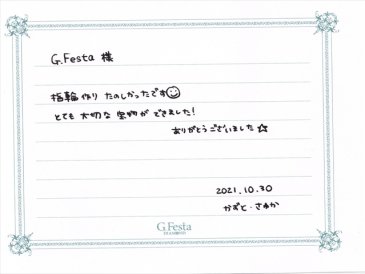 G.Festa 様
指輪作り たのしかったです
とても 大切な 宝物が できました!
ありがとうございました☆
2021.10.30
かずと・さやか
G.Festa
DIAMOND